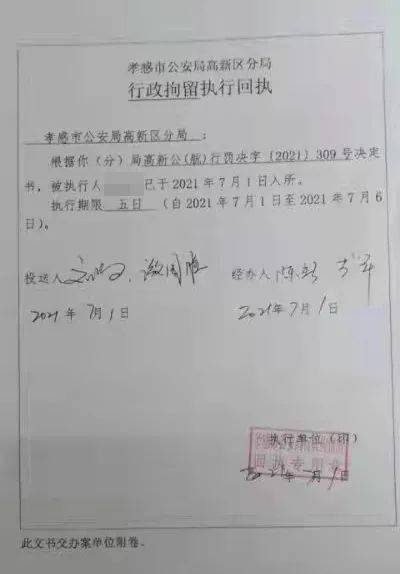 孝感市公安局高新区分局
行政拘留执行回执
孝感市公安局高新区分局：
根据你（分）局高新公(航)行罚决字〔2021〕309号决定
书，被执行人 已于2021年7月1日入所。
执行期限 五日 （自2021年7月1日至2021年7月6
日）。
投送人 经办人
2021年7月1日 2021年7月1日
执行单位（印）
2021年7月1日
此文书交办案单位附卷。